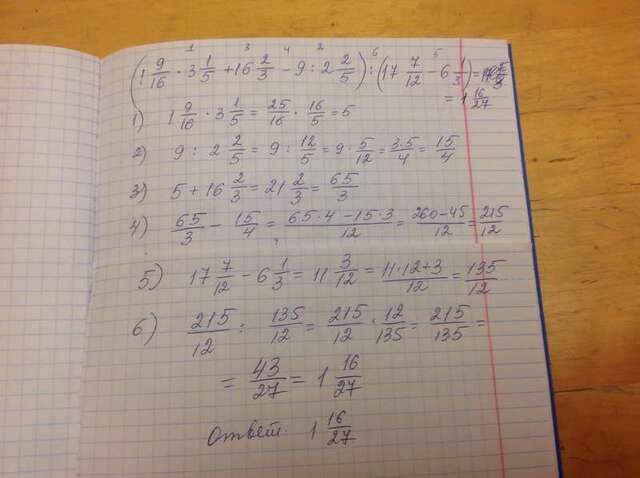 1 3 4 2 6 5
(1 9/16 · 3 1/5 + 16 2/3 − 9 : 2 2/5) : (17 7/12 − 6 1/3) =
= 1 16/27
1) 1 9/16 · 3 1/5 = 25/16 · 16/5 = 5
2) 9 : 2 2/5 = 9 : 12/5 = 9 · 5/12 = 3·5/4 = 15/4
3) 5 + 16 2/3 = 21 2/3 = 65/3
4) 65/3 − 15/4 = 65·4 − 15·3/12 = 260−45/12 = 215/12
5) 17 7/12 − 6 1/3 = 11 3/12 = 11·12+3/12 = 135/12
6) 215/12 : 135/12 = 215/12 · 12/135 = 215/135 =
= 43/27 = 1 16/27
Ответ. 1 16/27